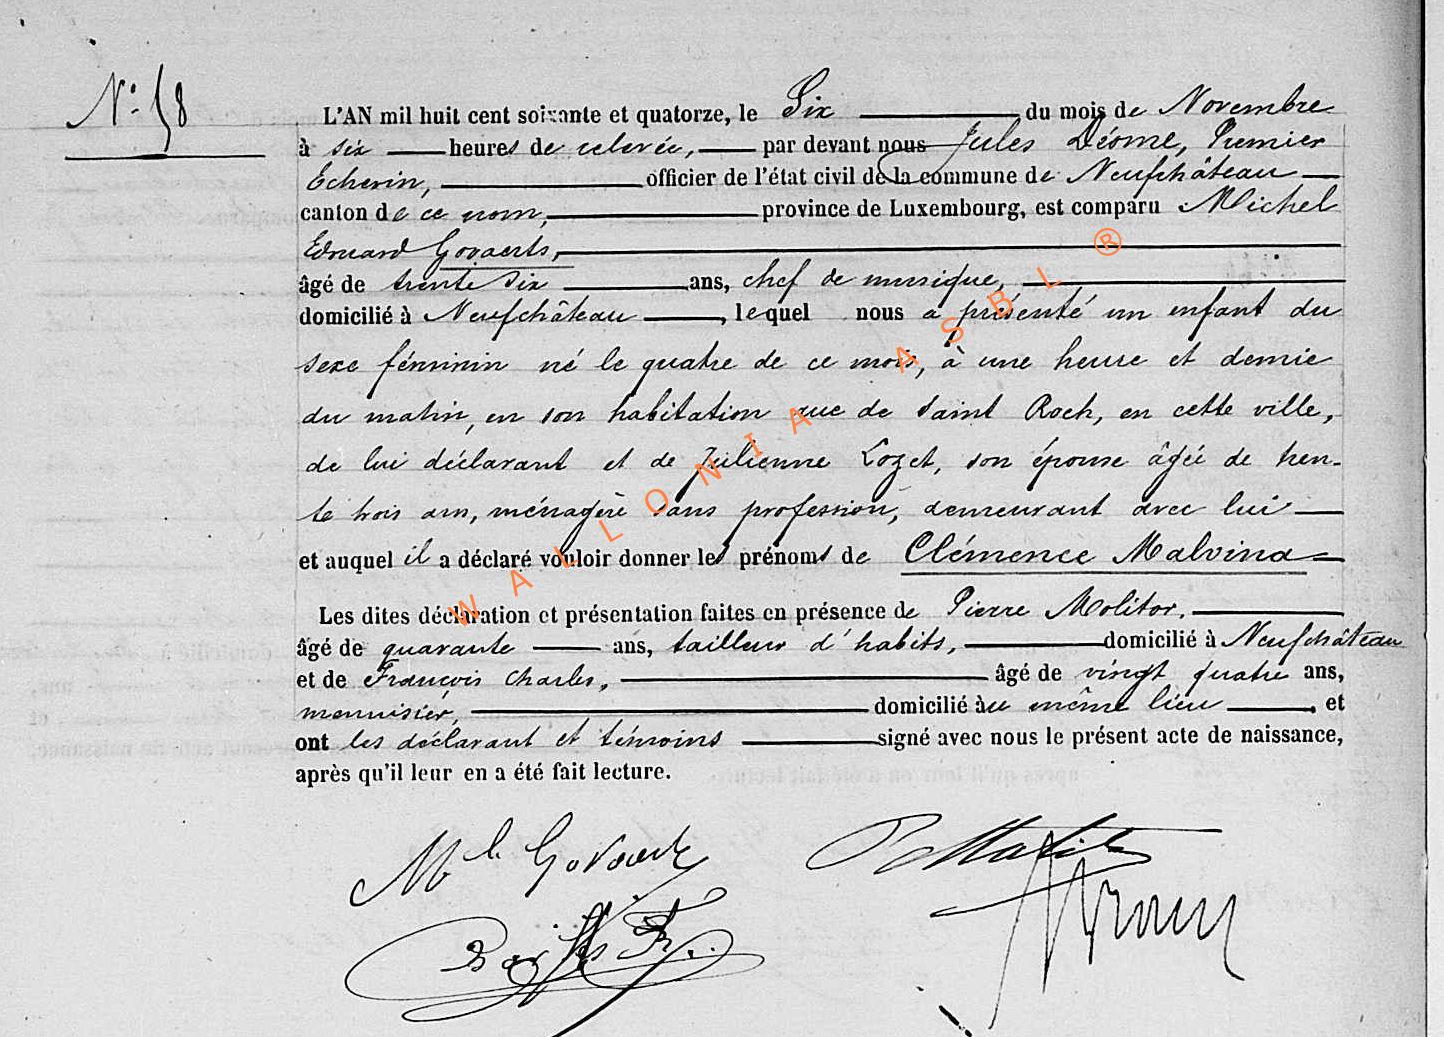 N° 58
L'AN mil huit cent soixante et quatorze, le Six du mois de Novembre
à six heures de relevée, par devant nous Jules Déome, Premier
Echevin, officier de l'état civil de la commune de Neufchâteau
canton de ce nom, province de Luxembourg, est comparu Michel
Edouard Govaerts,
âgé de trente six ans, chef de musique,
domicilié à Neufchâteau, lequel nous a présenté un enfant du
sexe féminin né le quatre de ce mois, à une heure et demie
du matin, en son habitation rue de Saint Roch, en cette ville,
de lui déclarant et de Julienne Lozet, son épouse âgée de tren-
te trois ans, ménagère sans profession, demeurant avec lui
et auquel il a déclaré vouloir donner les prénoms de Clémence Malvina
Les dites déclaration et présentation faites en présence de Pierre Molitor,
âgé de quarante ans, tailleur d'habits, domicilié à Neufchâteau
et de François Charles, âgé de vingt quatre ans,
menuisier, domicilié au même lieu, et
ont les déclarant et témoins signé avec nous le présent acte de naissance,
après qu'il leur en a été fait lecture.
WALLONIA ASBL ®
M^el Govaerts